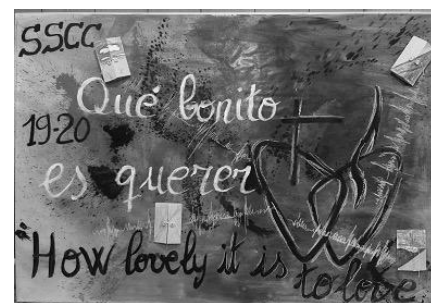 SSCC
Qué bonito
19-20
es querer
"How lovely it is
to love